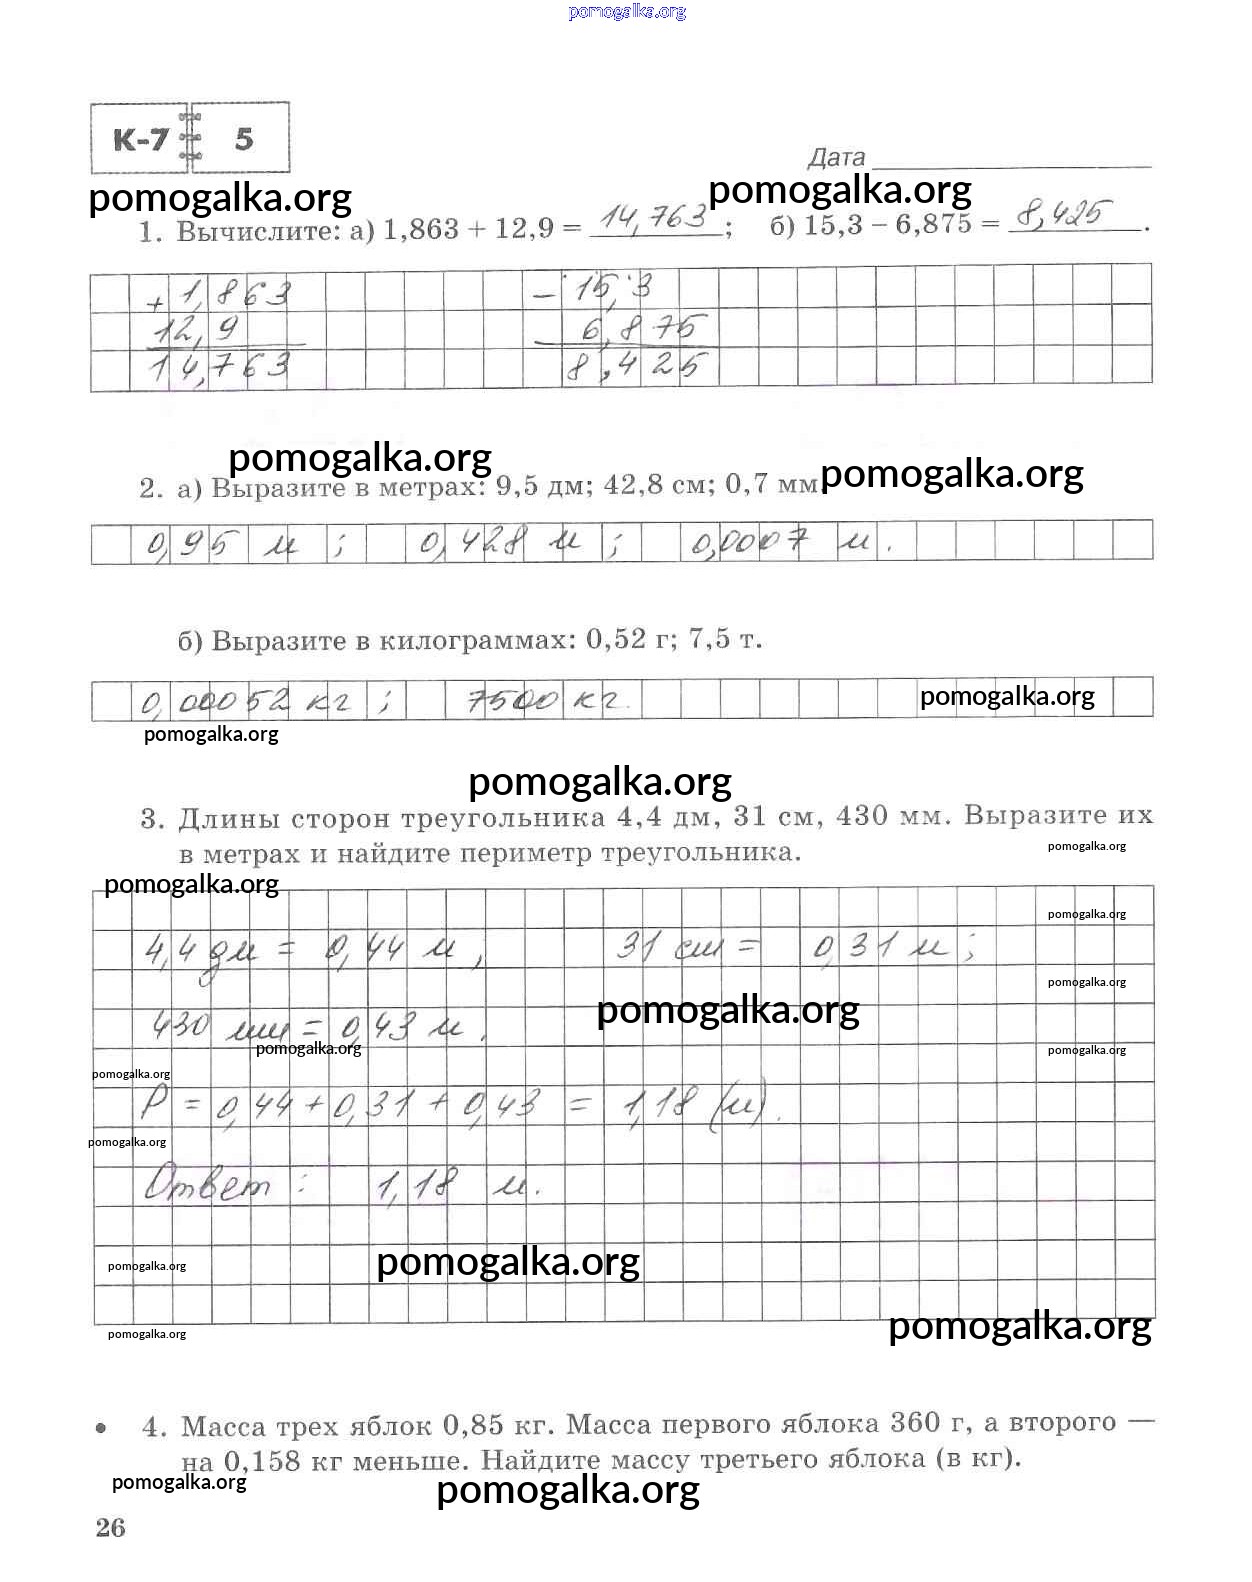 pomogalka.org
К-7 5
Дата
pomogalka.org pomogalka.org
1. Вычислите: а) 1,863 + 12,9 = 14,763; б) 15,3 – 6,875 = 8,425.
+ 1,863 – 15,3
12,9 6,875
14,763 8,425
pomogalka.org pomogalka.org
2. а) Выразите в метрах: 9,5 дм; 42,8 см; 0,7 мм.
0,95 м; 0,428 м; 0,0007 м.
б) Выразите в килограммах: 0,52 г; 7,5 т.
0,00052 кг; 7500 кг. pomogalka.org
pomogalka.org
pomogalka.org
3. Длины сторон треугольника 4,4 дм, 31 см, 430 мм. Выразите их
в метрах и найдите периметр треугольника.
pomogalka.org
pomogalka.org
pomogalka.org
4,4 дм = 0,44 м, 31 см = 0,31 м;
pomogalka.org
pomogalka.org
430 мм = 0,43 м.
pomogalka.org pomogalka.org
pomogalka.org
P = 0,44 + 0,31 + 0,43 = 1,18 (м).
pomogalka.org
Ответ: 1,18 м.
pomogalka.org pomogalka.org
pomogalka.org pomogalka.org
• 4. Масса трех яблок 0,85 кг. Масса первого яблока 360 г, а второго —
на 0,158 кг меньше. Найдите массу третьего яблока (в кг).
pomogalka.org pomogalka.org
26